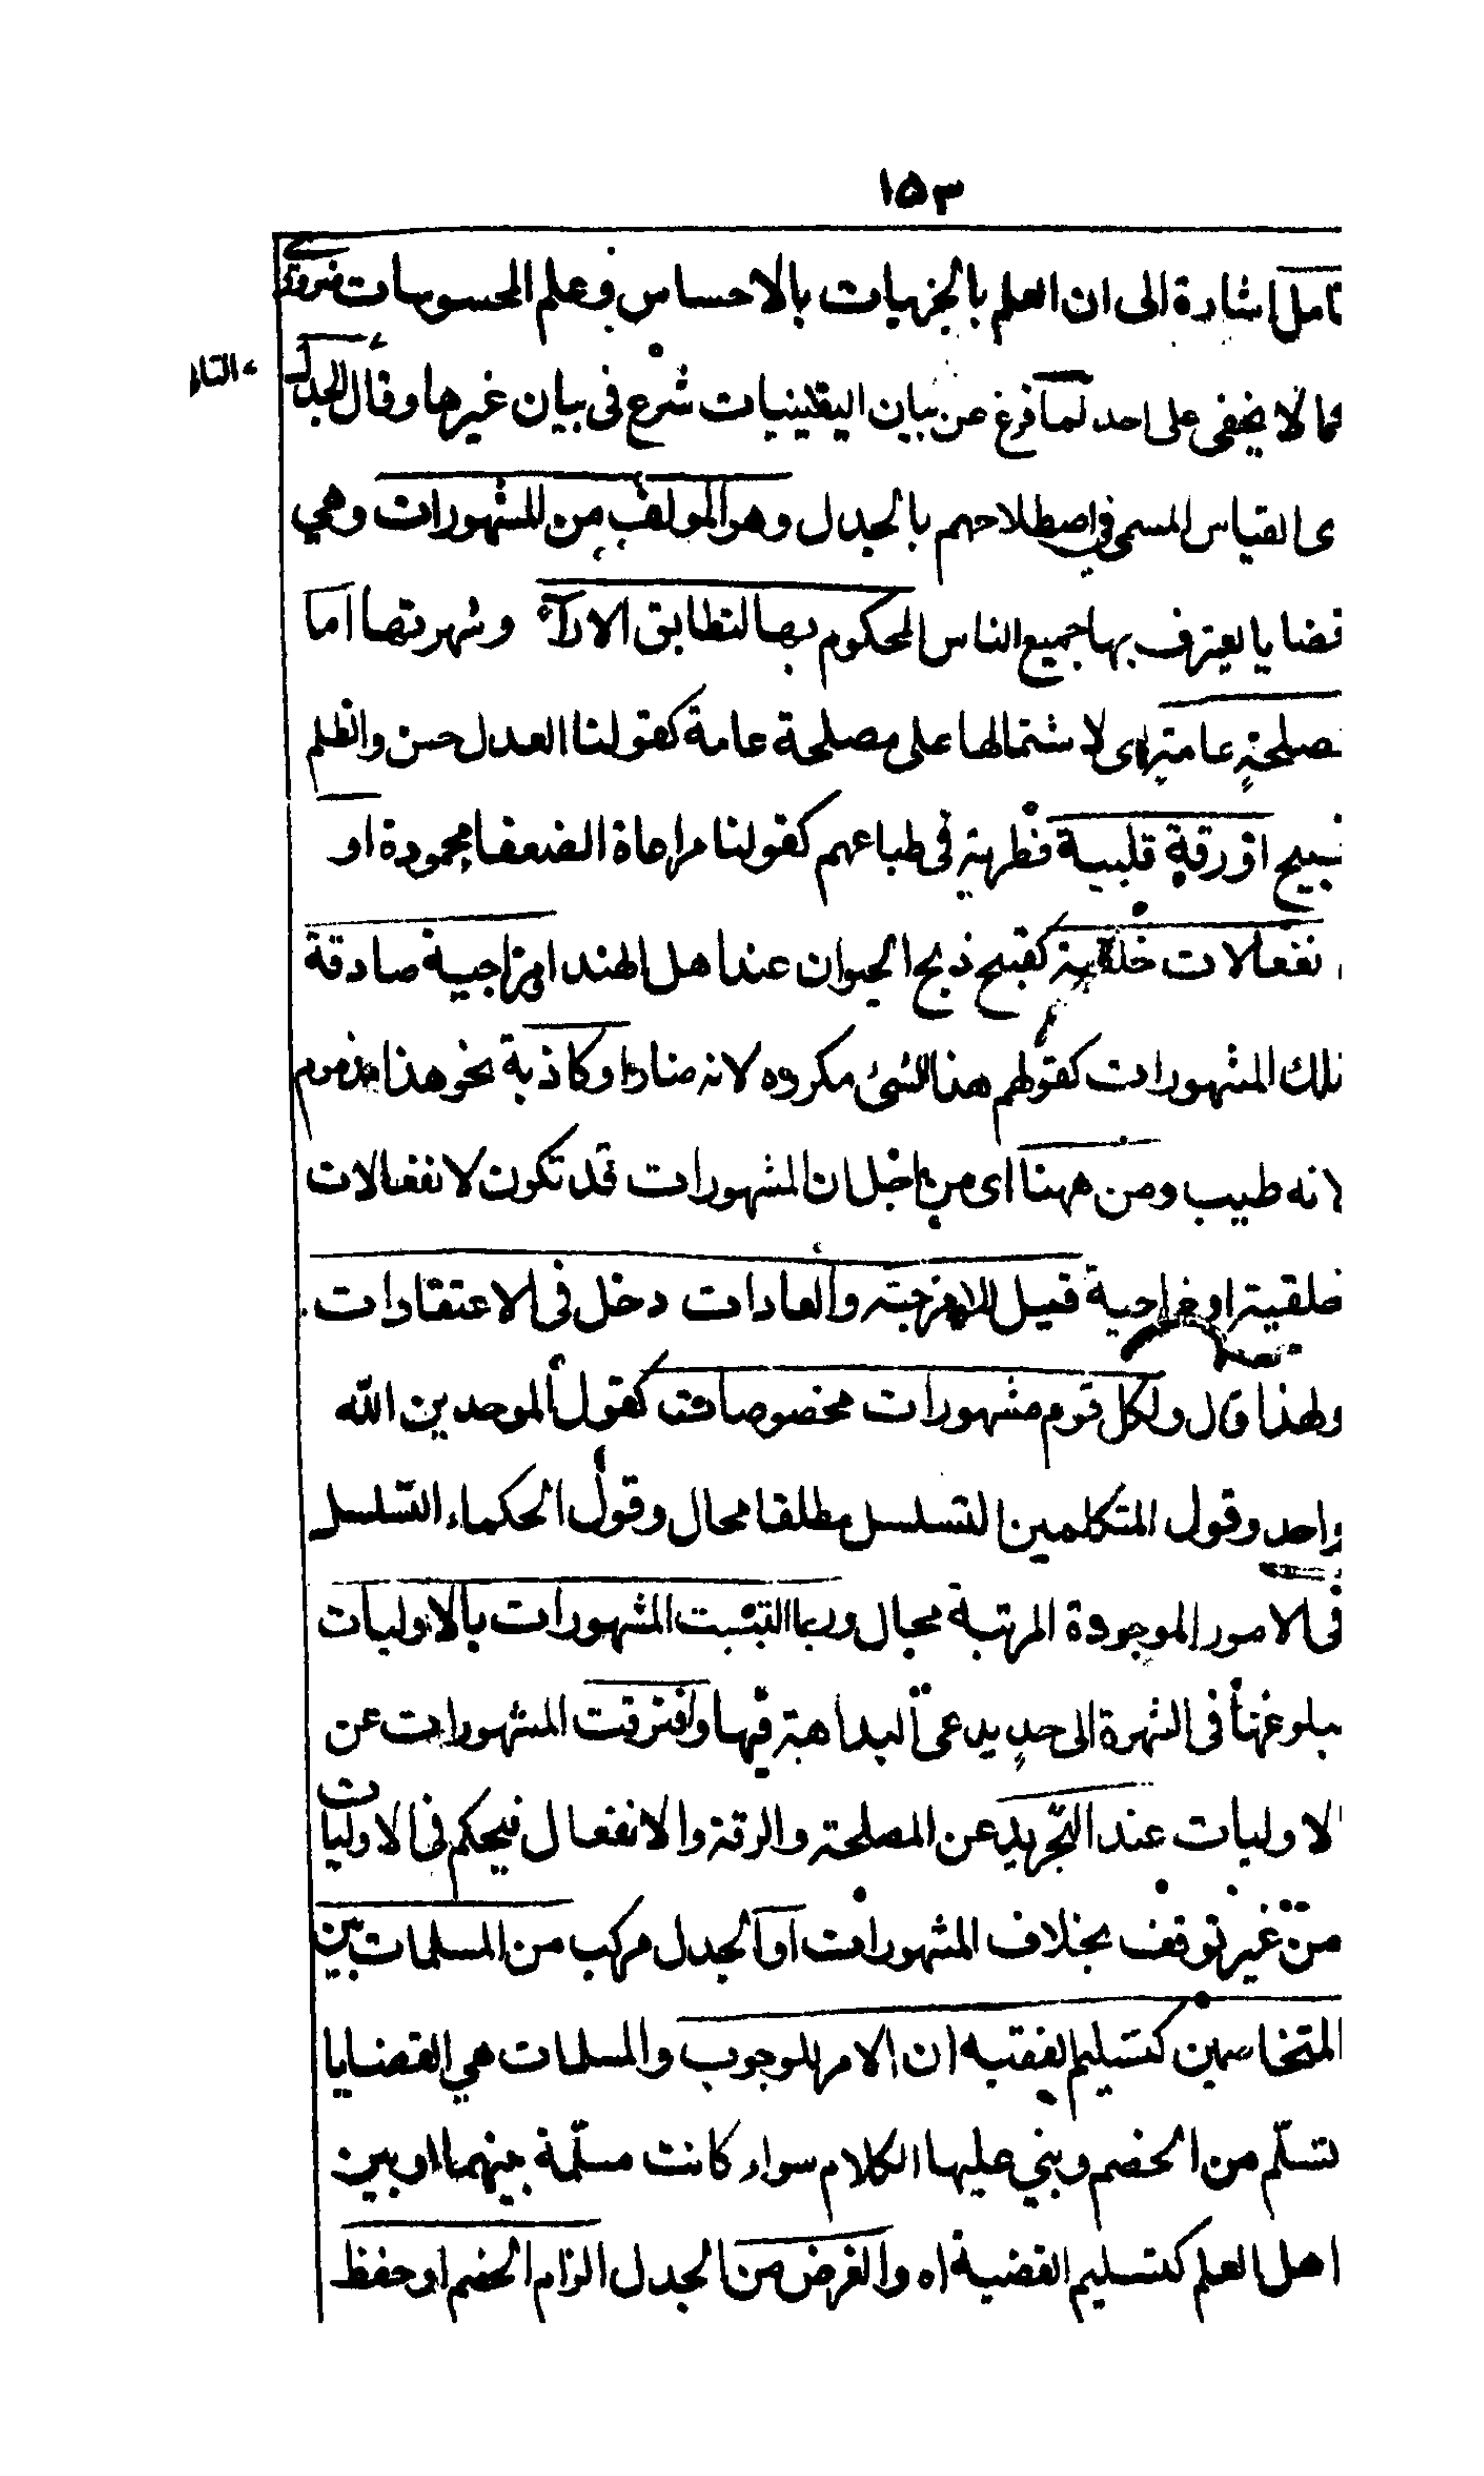 ۱۵۳
تامل اشارة الى ان العلم بالجزئيات بالاحساس وعلم المحسوسات
مما لا يخفى على احد لما فرغ عن بيان اليقينيات شرع فى بيان غيرها وقال الجدل
ى القياس المسمى فى اصطلاحهم بالجدل وهو المولف من المشهورات وهي
قضايا يعترف بها جميع الناس المحكوم بها لتطابق الاراء وشهرتها اما
لمصلحةٍ عامةٍ اى لاشتمالها على مصلحة عامة كقولنا العدل حسن والظلم
قبيح او رقةٍ قلبية فطرية فى طباعهم كقولنا مراعاة الضعفا محمودة او
انفعالات خلقية كقبح ذبح الحيوان عند اهل الهند او مزاجية صادقة
تلك المشهورات كقولهم هذا الشئ مكروه لانه ضار او كاذبة نحو هذا مذموم
لانه طيب ومن ههنا اى من اجل ان المشهورات قد تكون لانفعالات
خلقية او مزاجية قيل للامزجة والعادات دخل فى الاعتقادات
ولهذا قال ولكل قوم مشهورات مخصوصات كقول الموحدين الله
واحد وقول المتكلمين التسلسل مطلقا محال وقول الحكماء التسلسل
فى الامور الموجودة المرتبة محال وربما التبست المشهورات بالاوليات
ببلوغها فى الشهرة الى حدٍ يدعى البداهة فيها وافترقت المشهورات عن
الاوليات عند التجريد عن المصلحة والرقة والانفعال فيحكم فى الاوليات
من غير توقف بخلاف المشهورات او الجدل مركب من المسلمات بين
المتخاصمين كتسليم الفقيه ان الامر للوجوب والمسلمات هي القضايا
تسلّم من الخصم ويبنى عليها الكلام سواء كانت مسلّمة بينهما او بين
اهل العلم كتسليم القضية اه والغرض من الجدل الزام الخصم او حفظ